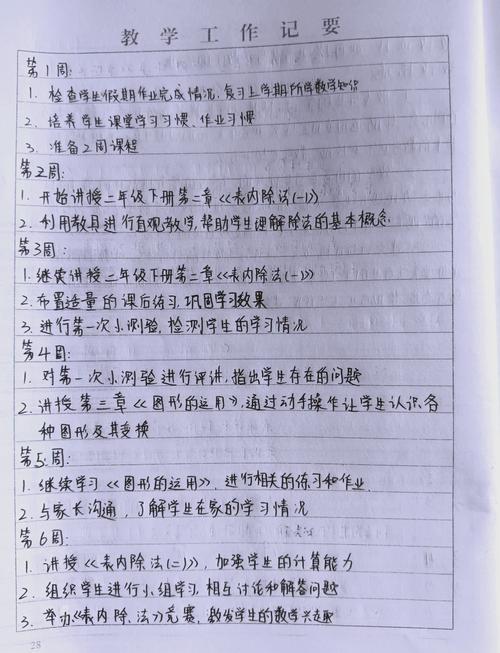 教学工作记要
第1周:
1. 检查学生假期作业完成情况,复习上学期所学数学知识
2. 培养学生课堂学习习惯、作业习惯
3. 准备2周课程
第2周:
1. 开始讲授二年级下册第二章《表内除法(一)》
2. 利用教具进行直观教学,帮助学生理解除法的基本概念
第3周:
1. 继续讲授二年级下册第二章《表内除法(一)》
2. 布置适量的课后练习,巩固学习效果
3. 进行第一次小测验,检测学生的学习情况
第4周:
1. 对第一次小测验进行评讲,指出学生存在的问题
2. 讲授第三章《图形的运用》,通过动手操作让学生认识各
种图形及其变换
第5周:
1. 继续学习《图形的运用》,进行相关的练习和作业
2. 与家长沟通,了解学生在家的学习情况
第6周:
1. 讲授《表内除法(二)》,加强学生的计算能力
2. 组织学生进行小组学习,相互讨论和解答问题
3. 举办《表内除法》竞赛,激发学生的数学兴趣
28